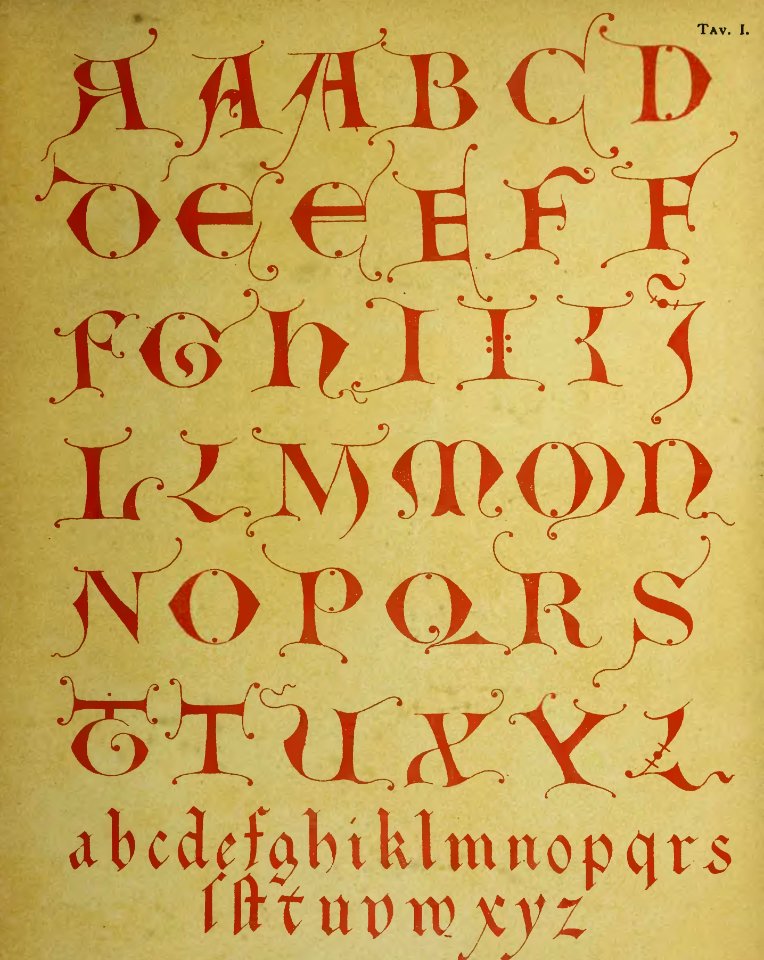 TAV. I.
A A A B C D
D E E E F F
F G H I I K J
L L M M M N
N O P Q R S
T T U X Y Z
a b c d e f g h i k l m n o p q r s
ſ ſt t u v w x y z